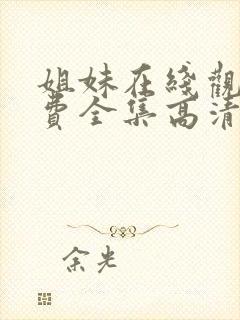 姐妹在綫觀
費全集高清
余光